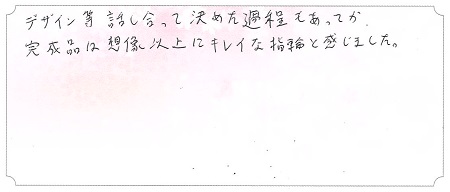 デザイン等 話し合って決めた過程もあってか、
完成品は想像以上にキレイな指輪と感じました。